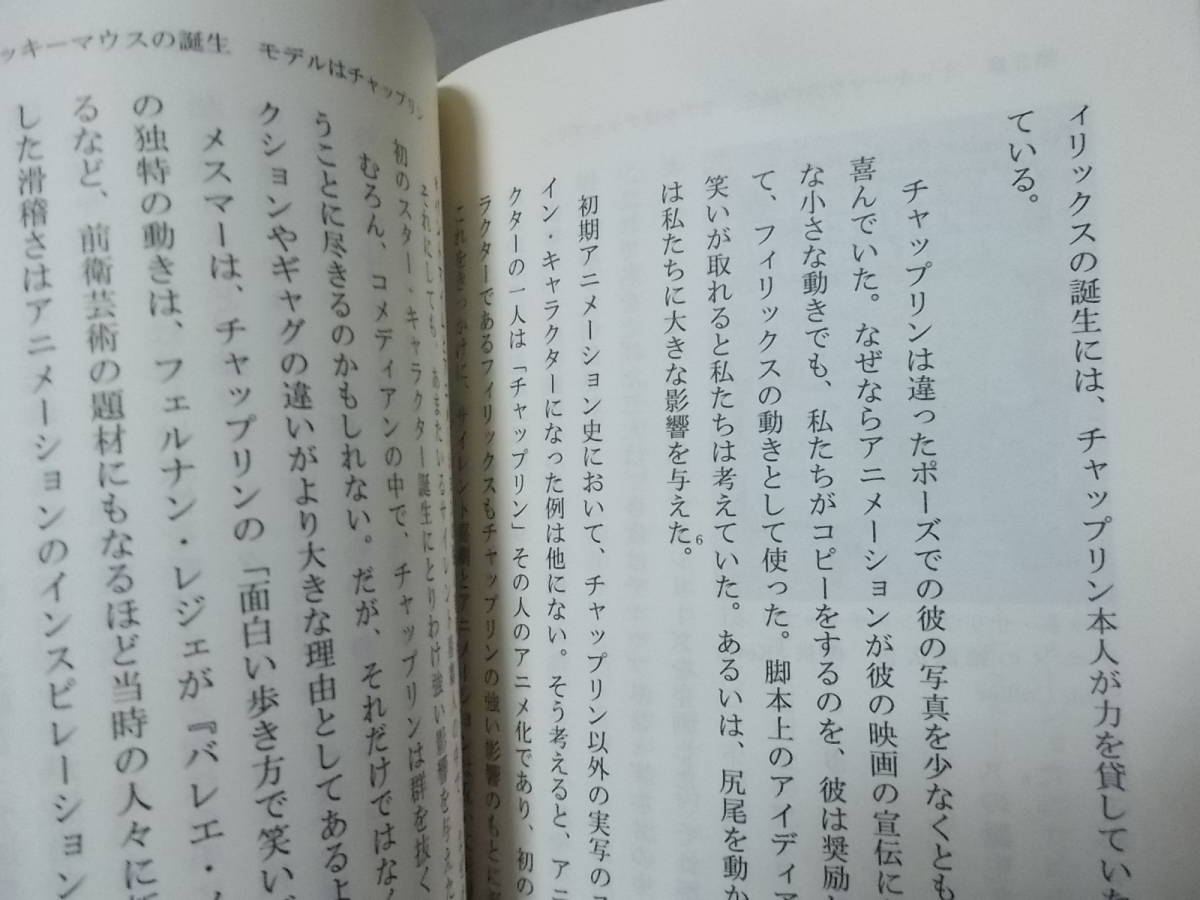 ィリックスの誕生には、チャップリン本人が力を貸していた
ている。
チャップリンは違ったポーズでの彼の写真を少なくとも
喜んでいた。なぜならアニメーションが彼の映画の宣伝に
な小さな動きでも、私たちがコピーをするのを、彼は奨励
て、フィリックスの動きとして使った。脚本上のアイディア
笑いが取れると私たちは考えていた。あるいは、尻尾を動か
は私たちに大きな影響を与えた。6
初期アニメーション史において、チャップリン以外の実写のコ
イン・キャラクターになった例は他にない。そう考えると、アニ
クターの一人は「チャップリン」その人のアニメ化であり、初の
ラクターであるフィリックスもチャップリンの強い影響のもとに
これをきっかけに、サイレント喜劇とアニメーション
ッキーマウスの誕生 モデルはチャップリン
それにしても、あまたいるサイレント
初のスター・キャラクター誕生にとりわけ強い影響を与えた
むろん、コメディアンの中で、チャップリンは群を抜く
うことに尽きるのかもしれない。だが、それだけではなく
クションやギャグの違いがより大きな理由としてあるよ
メスマーは、チャップリンの「面白い歩き方で笑い
の独特の動きは、フェルナン・レジェが『バレエ・
るなど、前衛芸術の題材にもなるほど当時の人々に
した滑稽さはアニメーションのインスピレーション